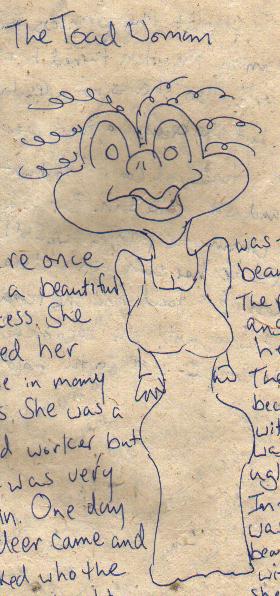 The Toad Woman
re once
a beautiful
cess. She
ed her
e in many
s. She was a
d worker, but
was very
in. One day
deer came and
ked who the
was
beau
The p
an
h
The
bec
wit
wa
ugl
In
was
bea
wi
sh